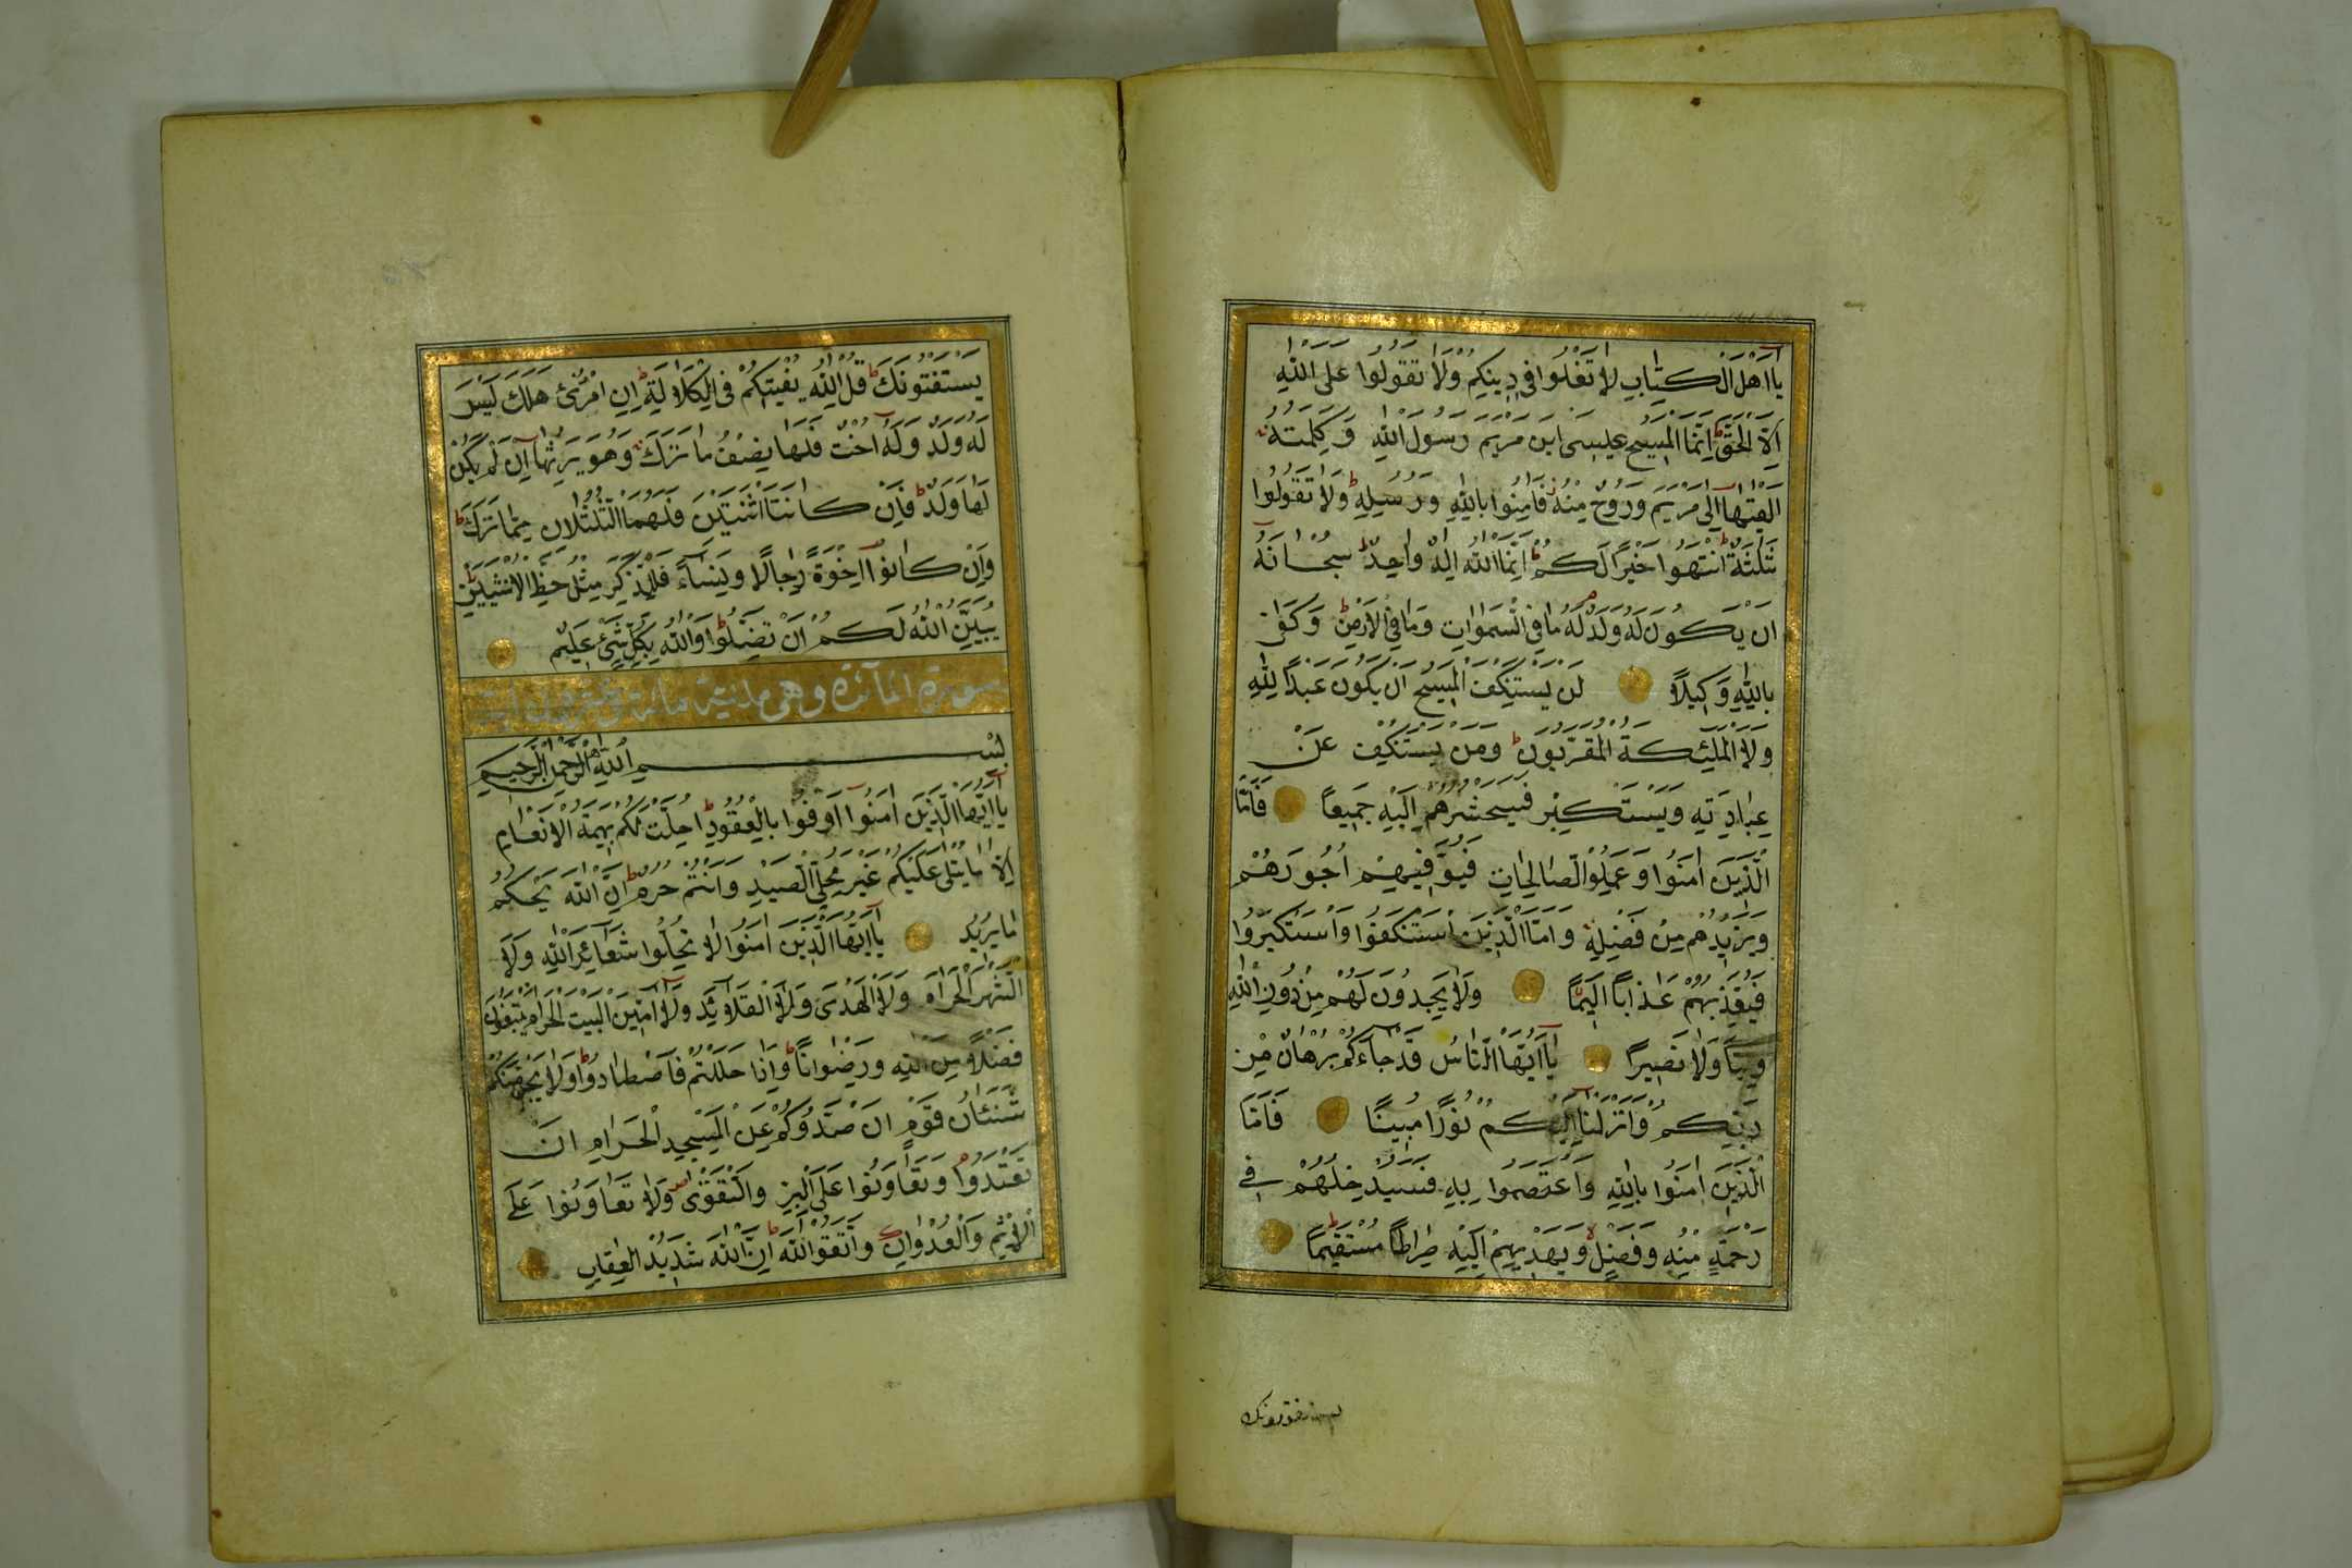 يَا اَهْلَ الْكِتَابِ لَا تَغْلُوا فِي دِينِكُمْ وَلَا تَقُولُوا عَلَى اللّٰهِ
اِلَّا الْحَقَّ ط اِنَّمَا الْمَسِيحُ عِيسَى ابْنُ مَرْيَمَ رَسُولُ اللّٰهِ وَكَلِمَتُهُ
اَلْقٰيهَا اِلٰى مَرْيَمَ وَرُوحٌ مِنْهُ فَاٰمِنُوا بِاللّٰهِ وَرُسُلِهِ ط وَلَا تَقُولُوا
ثَلٰثَةٌ ط اِنْتَهُوا خَيْرًا لَكُمْ ط اِنَّمَا اللّٰهُ اِلٰهٌ وَاحِدٌ ط سُبْحَانَهُ
اَنْ يَكُونَ لَهُ وَلَدٌ م لَهُ مَا فِي السَّمٰوَاتِ وَمَا فِي الْاَرْضِ ط وَكَفٰى
بِاللّٰهِ وَكِيلًا لَنْ يَسْتَنْكِفَ الْمَسِيحُ اَنْ يَكُونَ عَبْدًا لِلّٰهِ
وَلَا الْمَلٰٓئِكَةُ الْمُقَرَّبُونَ ط وَمَنْ يَسْتَنْكِفْ عَنْ
عِبَادَتِهِ وَيَسْتَكْبِرْ فَسَيَحْشُرُهُمْ اِلَيْهِ جَمِيعًا فَاَمَّا
الَّذِينَ اٰمَنُوا وَعَمِلُوا الصَّالِحَاتِ فَيُوَفِّيهِمْ اُجُورَهُمْ
وَيَزِيدُهُمْ مِنْ فَضْلِهِ وَاَمَّا الَّذِينَ اسْتَنْكَفُوا وَاسْتَكْبَرُوا
فَيُعَذِّبُهُمْ عَذَابًا اَلِيمًا وَلَا يَجِدُونَ لَهُمْ مِنْ دُونِ اللّٰهِ
وَلِيًّا وَلَا نَصِيرًا يَا اَيُّهَا النَّاسُ قَدْ جَاءَكُمْ بُرْهَانٌ مِنْ
رَبِّكُمْ وَاَنْزَلْنَا اِلَيْكُمْ نُورًا مُبِينًا فَاَمَّا
الَّذِينَ اٰمَنُوا بِاللّٰهِ وَاعْتَصَمُوا بِهِ فَسَيُدْخِلُهُمْ فِي
رَحْمَةٍ مِنْهُ وَفَضْلٍ لا وَيَهْدِيهِمْ اِلَيْهِ صِرَاطًا مُسْتَقِيمًا
يستفتونك
يَسْتَفْتُونَكَ ط قُلِ اللّٰهُ يُفْتِيكُمْ فِي الْكَلَالَةِ ط اِنِ امْرُؤٌ هَلَكَ لَيْسَ
لَهُ وَلَدٌ وَلَهُ اُخْتٌ فَلَهَا نِصْفُ مَا تَرَكَ وَهُوَ يَرِثُهَا اِنْ لَمْ يَكُنْ
لَهَا وَلَدٌ ط فَاِنْ كَانَتَا اثْنَتَيْنِ فَلَهُمَا الثُّلُثَانِ مِمَّا تَرَكَ ط
وَاِنْ كَانُوا اِخْوَةً رِجَالًا وَنِسَاءً فَلِلذَّكَرِ مِثْلُ حَظِّ الْاُنْثَيَيْنِ ط
يُبَيِّنُ اللّٰهُ لَكُمْ اَنْ تَضِلُّوا ط وَاللّٰهُ بِكُلِّ شَيْءٍ عَلِيمٌ
سورة المآئدة وهى مدنية مائة وعشرون اية
بِسْمِ اللّٰهِ الرَّحْمٰنِ الرَّحِيمِ
يَا اَيُّهَا الَّذِينَ اٰمَنُوا اَوْفُوا بِالْعُقُودِ ط اُحِلَّتْ لَكُمْ بَهِيمَةُ الْاَنْعَامِ
اِلَّا مَا يُتْلٰى عَلَيْكُمْ غَيْرَ مُحِلِّي الصَّيْدِ وَاَنْتُمْ حُرُمٌ ط اِنَّ اللّٰهَ يَحْكُمُ
مَا يُرِيدُ يَا اَيُّهَا الَّذِينَ اٰمَنُوا لَا تُحِلُّوا شَعَائِرَ اللّٰهِ وَلَا
الشَّهْرَ الْحَرَامَ وَلَا الْهَدْيَ وَلَا الْقَلَائِدَ وَلَا اٰمِّينَ الْبَيْتَ الْحَرَامَ يَبْتَغُونَ
فَضْلًا مِنَ اللّٰهِ وَرِضْوَانًا ط وَاِذَا حَلَلْتُمْ فَاصْطَادُوا ط وَلَا يَجْرِمَنَّكُمْ
شَنَئَانُ قَوْمٍ اَنْ صَدُّوكُمْ عَنِ الْمَسْجِدِ الْحَرَامِ اَنْ
تَعْتَدُوا م وَتَعَاوَنُوا عَلَى الْبِرِّ وَالتَّقْوٰى ص وَلَا تَعَاوَنُوا عَلَى
الْاِثْمِ وَالْعُدْوَانِ وَاتَّقُوا اللّٰهَ ط اِنَّ اللّٰهَ شَدِيدُ الْعِقَابِ